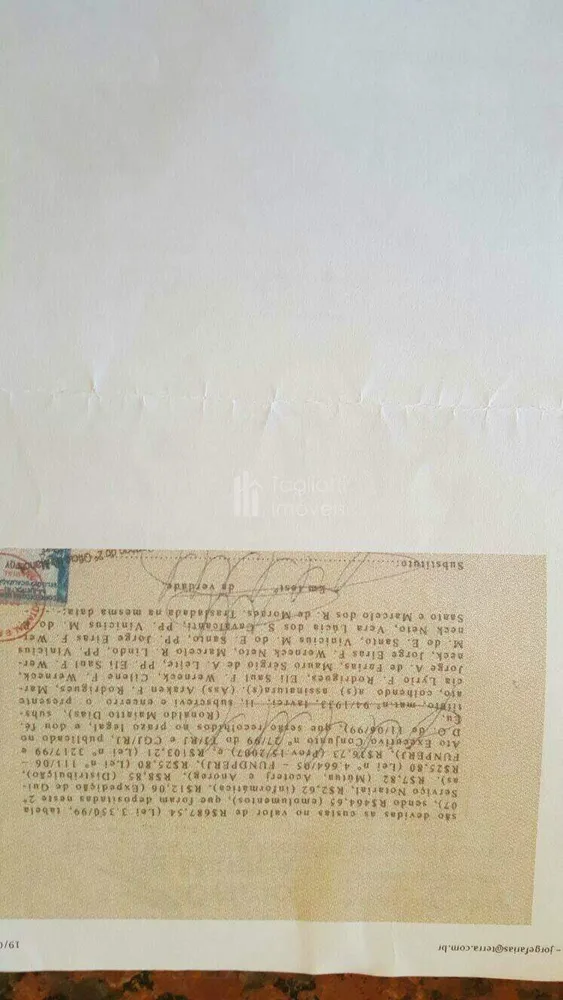 – jorgefarias@terra.com.br
são devidas as custas no valor de R$687,54 (Lei 3.350/99, tabela
07), sendo R$464,65 (emolumentos), que foram depositadas neste 2º
Serviço Notarial, R$2,62 (informática), R$12,06 (Expedição de Gui-
as), R$7,82 (Mútua, Acoterj e Anoreg), R$8,85 (Distribuição),
R$25,80 (Lei nº 4.664/05 – FUNDPERJ), R$25,80 (Lei nº 111/06 –
FUNPERJ), R$36,73 (Prov. 15/2007) e, R$103,21 (Lei nº 3217/99 e
Ato Executivo Conjunto nº 27/99 do TJ/RJ e CGJ/RJ, publicado no
D.O. de 11/06/99), que serão recolhidos no prazo legal, e dou fé.
Eu, (Ronaldo Maiatto Dias), subs-
tituto, mat. nº 94/1933, lavrei, li, subscrevi e encerro o presente
ato, colhendo a(s) assinatura(s). (Ass) Araken F. Rodrigues, Mar-
cia Lyrio F. Rodrigues, Eli Saul F. Werneck, Cilene F. Werneck,
Jorge A. de Farias, Mauro Sérgio de A. Leite, PP. Eli Saul F. Wer-
neck, Jorge Eiras F. Werneck Neto, Marcelo R. Lindo, PP. Vinicius
M. do E. Santo, Vinicius M. do E. Santo, PP. Jorge Eiras F. Wer-
neck Neto, Vera Lúcia dos S. Cavalcanti, PP. Vinicius M. do E.
Santo e Marcelo dos R. de Moraes. Trasladada na mesma data:-
Em testº da verdade
Substituto:
Tagliari
Imóveis